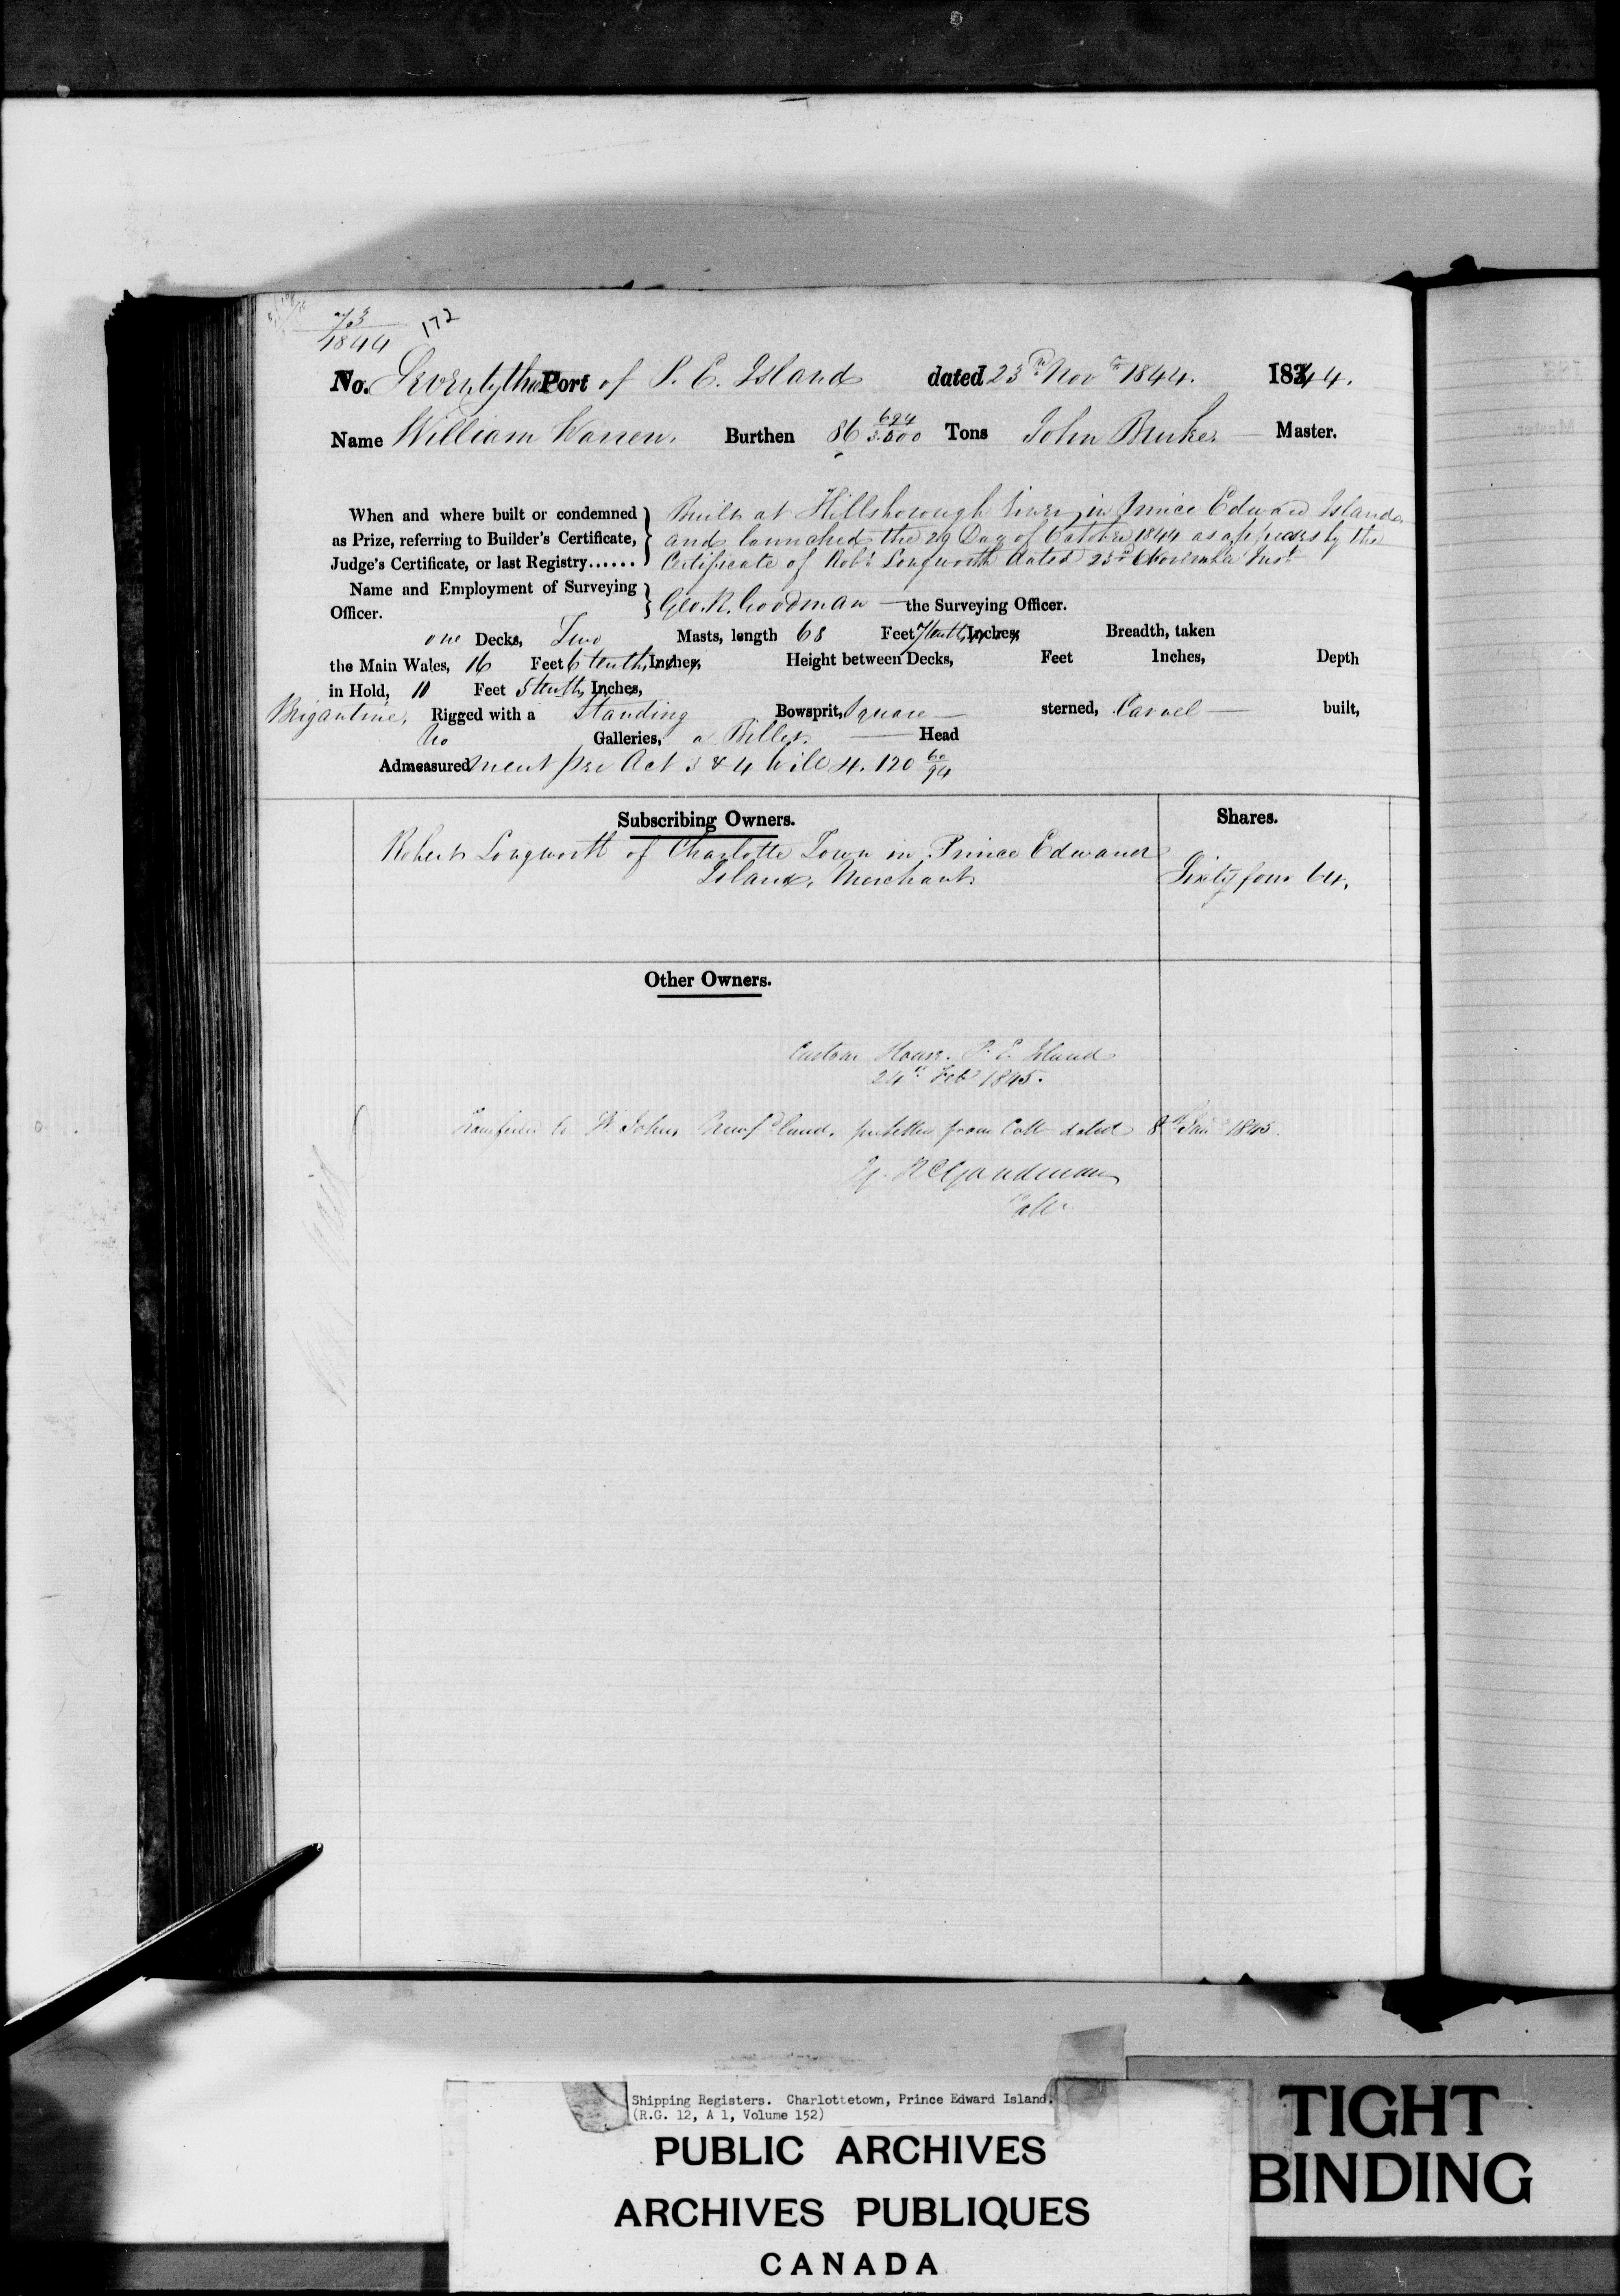 73
1844
172
No. Seventy three Port of P. E. Island dated 23rd Novr 1844. 18344.
Name William Warren. Burthen 86 694/3.500 Tons John Bruker Master.
When and where built or condemned as Prize, referring to Builder's Certificate, Judge's Certificate, or last Registry......
Built at Hillsborough River in Prince Edward Island
and launched the 29 Day of October 1844 as appears by the
Certificate of Robt Longworth dated 23rd November Inst
Name and Employment of Surveying Officer. Geo. R. Goodman the Surveying Officer.
one Decks, Two Masts, length 68 Feet 7 tenths Inches Breadth, taken
the Main Wales, 16 Feet 6 tenths Inches, Height between Decks, Feet Inches, Depth
in Hold, 11 Feet 5 tenths Inches,
Brigantine, Rigged with a Standing Bowsprit, Square sterned, Carvel built,
No Galleries, a Billet Head
Admeasured ment per Act 3 & 4 Will 4. 120 60/94
Subscribing Owners. Shares.
Robert Longworth of Charlotte Town in Prince Edward
Island, Merchant Sixty four 64.
Other Owners.
Custom House. P. E. Island
24th Feb 1845.
Transferred to St Johns Newfdland. letter from dated 8th Jan 1845.
Goodman
Collr
Shipping Registers. Charlottetown, Prince Edward Island.
(R.G. 12, A 1, Volume 152)
PUBLIC ARCHIVES
ARCHIVES PUBLIQUES
CANADA
TIGHT
BINDING